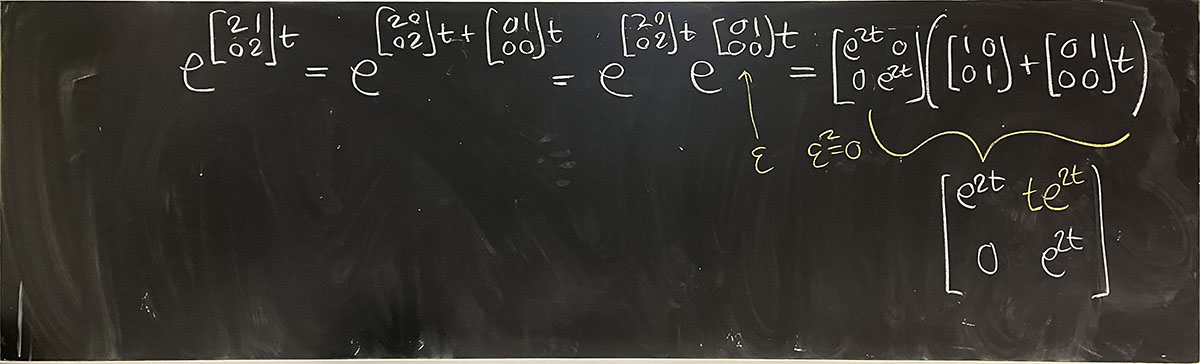 e^{[2 1; 0 2]t} = e^{[2 0; 0 2]t + [0 1; 0 0]t} = e^{[2 0; 0 2]t} e^{[0 1; 0 0]t} = [e^{2t} 0; 0 e^{2t}]([1 0; 0 1] + [0 1; 0 0]t)
ε ε²=0
[e^{2t} te^{2t}; 0 e^{2t}]